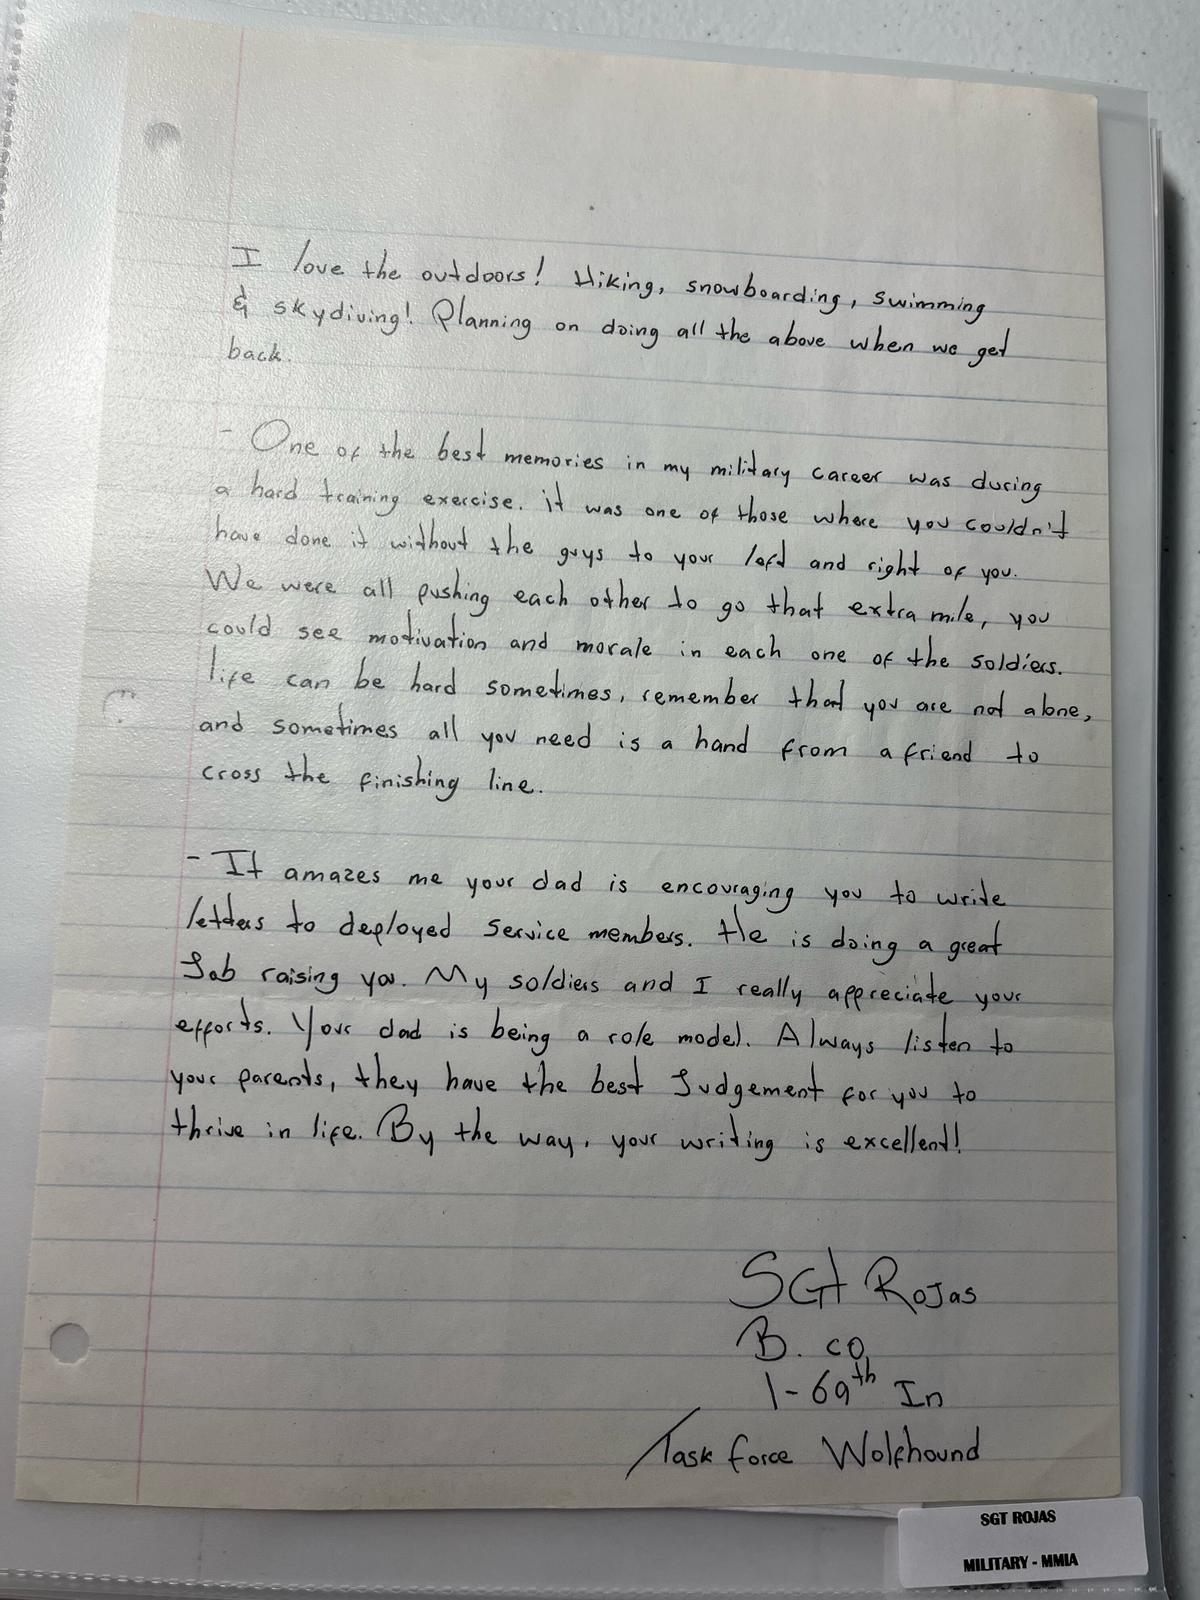 I love the outdoors! Hiking, snowboarding, swimming
& skydiving! Planning on doing all the above when we get
back.
- One of the best memories in my military career was during
a hard training exercise. it was one of those where you couldn't
have done it without the guys to your left and right of you.
We were all pushing each other to go that extra mile, you
could see motivation and morale in each one of the soldiers.
life can be hard sometimes, remember that you are not alone,
and sometimes all you need is a hand from a friend to
cross the finishing line.
- It amazes me your dad is encouraging you to write
letters to deployed service members. He is doing a great
Job raising you. My soldiers and I really appreciate your
efforts. Your dad is being a role model. Always listen to
your parents, they have the best Judgement for you to
thrive in life. By the way, your writing is excellent!
SGT Rojas
B. co
1-69th In
Task force Wolfhound
SGT ROJAS
MILITARY - MMIA